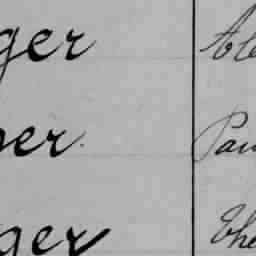 ger Ale
per. Pau
ger The